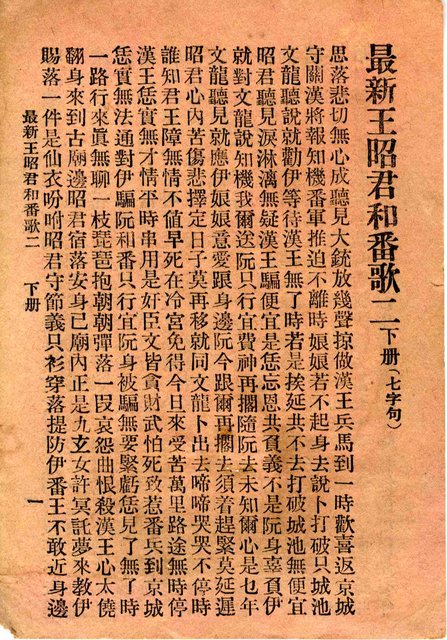 最新王昭君和番歌二下册(七字句)
思落悲切無心成聽見大銃放幾聲掠做漢王兵馬到一時歡喜返京城
守關漢將報知機番軍推迫不離時娘娘若不起身去說卜打破只城池
文龍聽說就勸伊等待漢王無了時若是挨延共不去打破城池無便宜
昭君聽見淚淋漓無疑漢王騙便宜是恁忘恩共負義不是阮身辜負伊
就對文龍說知機我爾送阮只行宜費神再擱隨阮去未知爾心是乜年
文龍聽見就應伊娘娘意愛跟身邊阮今跟爾再擱去須着趕緊莫延遲
昭君心內苦傷悲擇定日子莫再移就同文龍卜出去啼啼哭哭不停時
誰知君王障無情不值早死在冷宮免得今日來受苦萬里路途無時停
漢王恁實無才情平時串用是奸臣文皆貪財武怕死致惹番兵到京城
恁實無法通對伊騙阮和番只行宜阮身被騙無要緊虧恁見了無了時
一路行來眞無聊一枝琵琶抱朝朝彈落一叚哀怨曲恨殺漢王心太僥
翻身來到古廟邊昭君宿落安身已廟內正是九玄女許冥託夢來教伊
賜落一件是仙衣吩咐昭君守節義只衫穿落提防伊番王不敢近身邊
最新王昭君和番歌二 下册 一